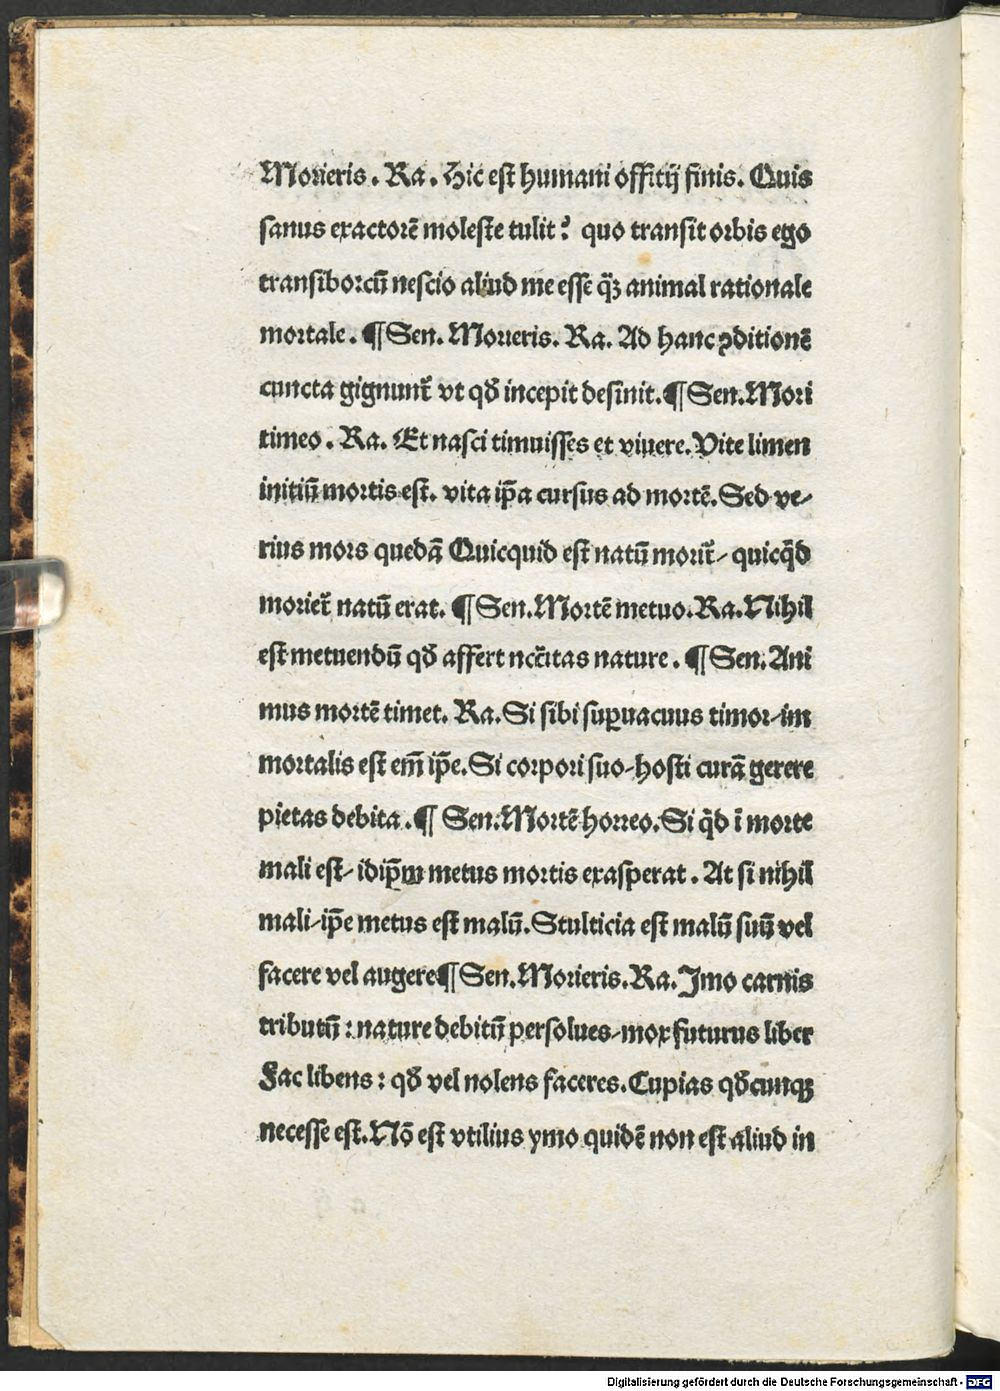 Morieris. Ra. Hic est humani offitij finis. Quis
sanus exactorē moleste tulit? quo transit orbis ego
transibo:cū nescio aliud me esse q̄ꝫ animal rationale
mortale. ¶ Sen. Morieris. Ra. Ad hanc ꝯditionē
cuncta gignunt᷑ vt qď incepit desinit. ¶ Sen. Mori
timeo. Ra. Et nasci timuisses et viuere. Vite limen
initiū mortis est. vita ip̄a cursus ad mortē. Sed ve⸗
rius mors quedā Quicquid est natū morit᷑/ quicq̄d
moriet᷑ natū erat. ¶ Sen. Mortē metuo. Ra. Nihil
est metuendū qď affert nc̄citas nature. ¶ Sen. Ani
mus mortē timet. Ra. Si sibi suꝑuacuus timor/im
mortalis est em̄ ip̄e. Si corpori suo/hosti curā gerere
pietas debita. ¶ Sen. Mortē horreo. Si q̄d ī morte
mali est/ idip̄m metus mortis exasperat. At si nihil
mali/ip̄e metus est malū. Stulticia est malū suū vel
facere vel augere ¶ Sen. Morieris. Ra. Imo carnis
tributū : nature debitū persolues/mox futurus liber
Fac libens : qď vel nolens faceres. Cupias qďcunqꝫ
necesse est. Nō est vtilius ymo quidē non est aliud in
Digitalisierung gefördert durch die Deutsche Forschungsgemeinschaft - DFG